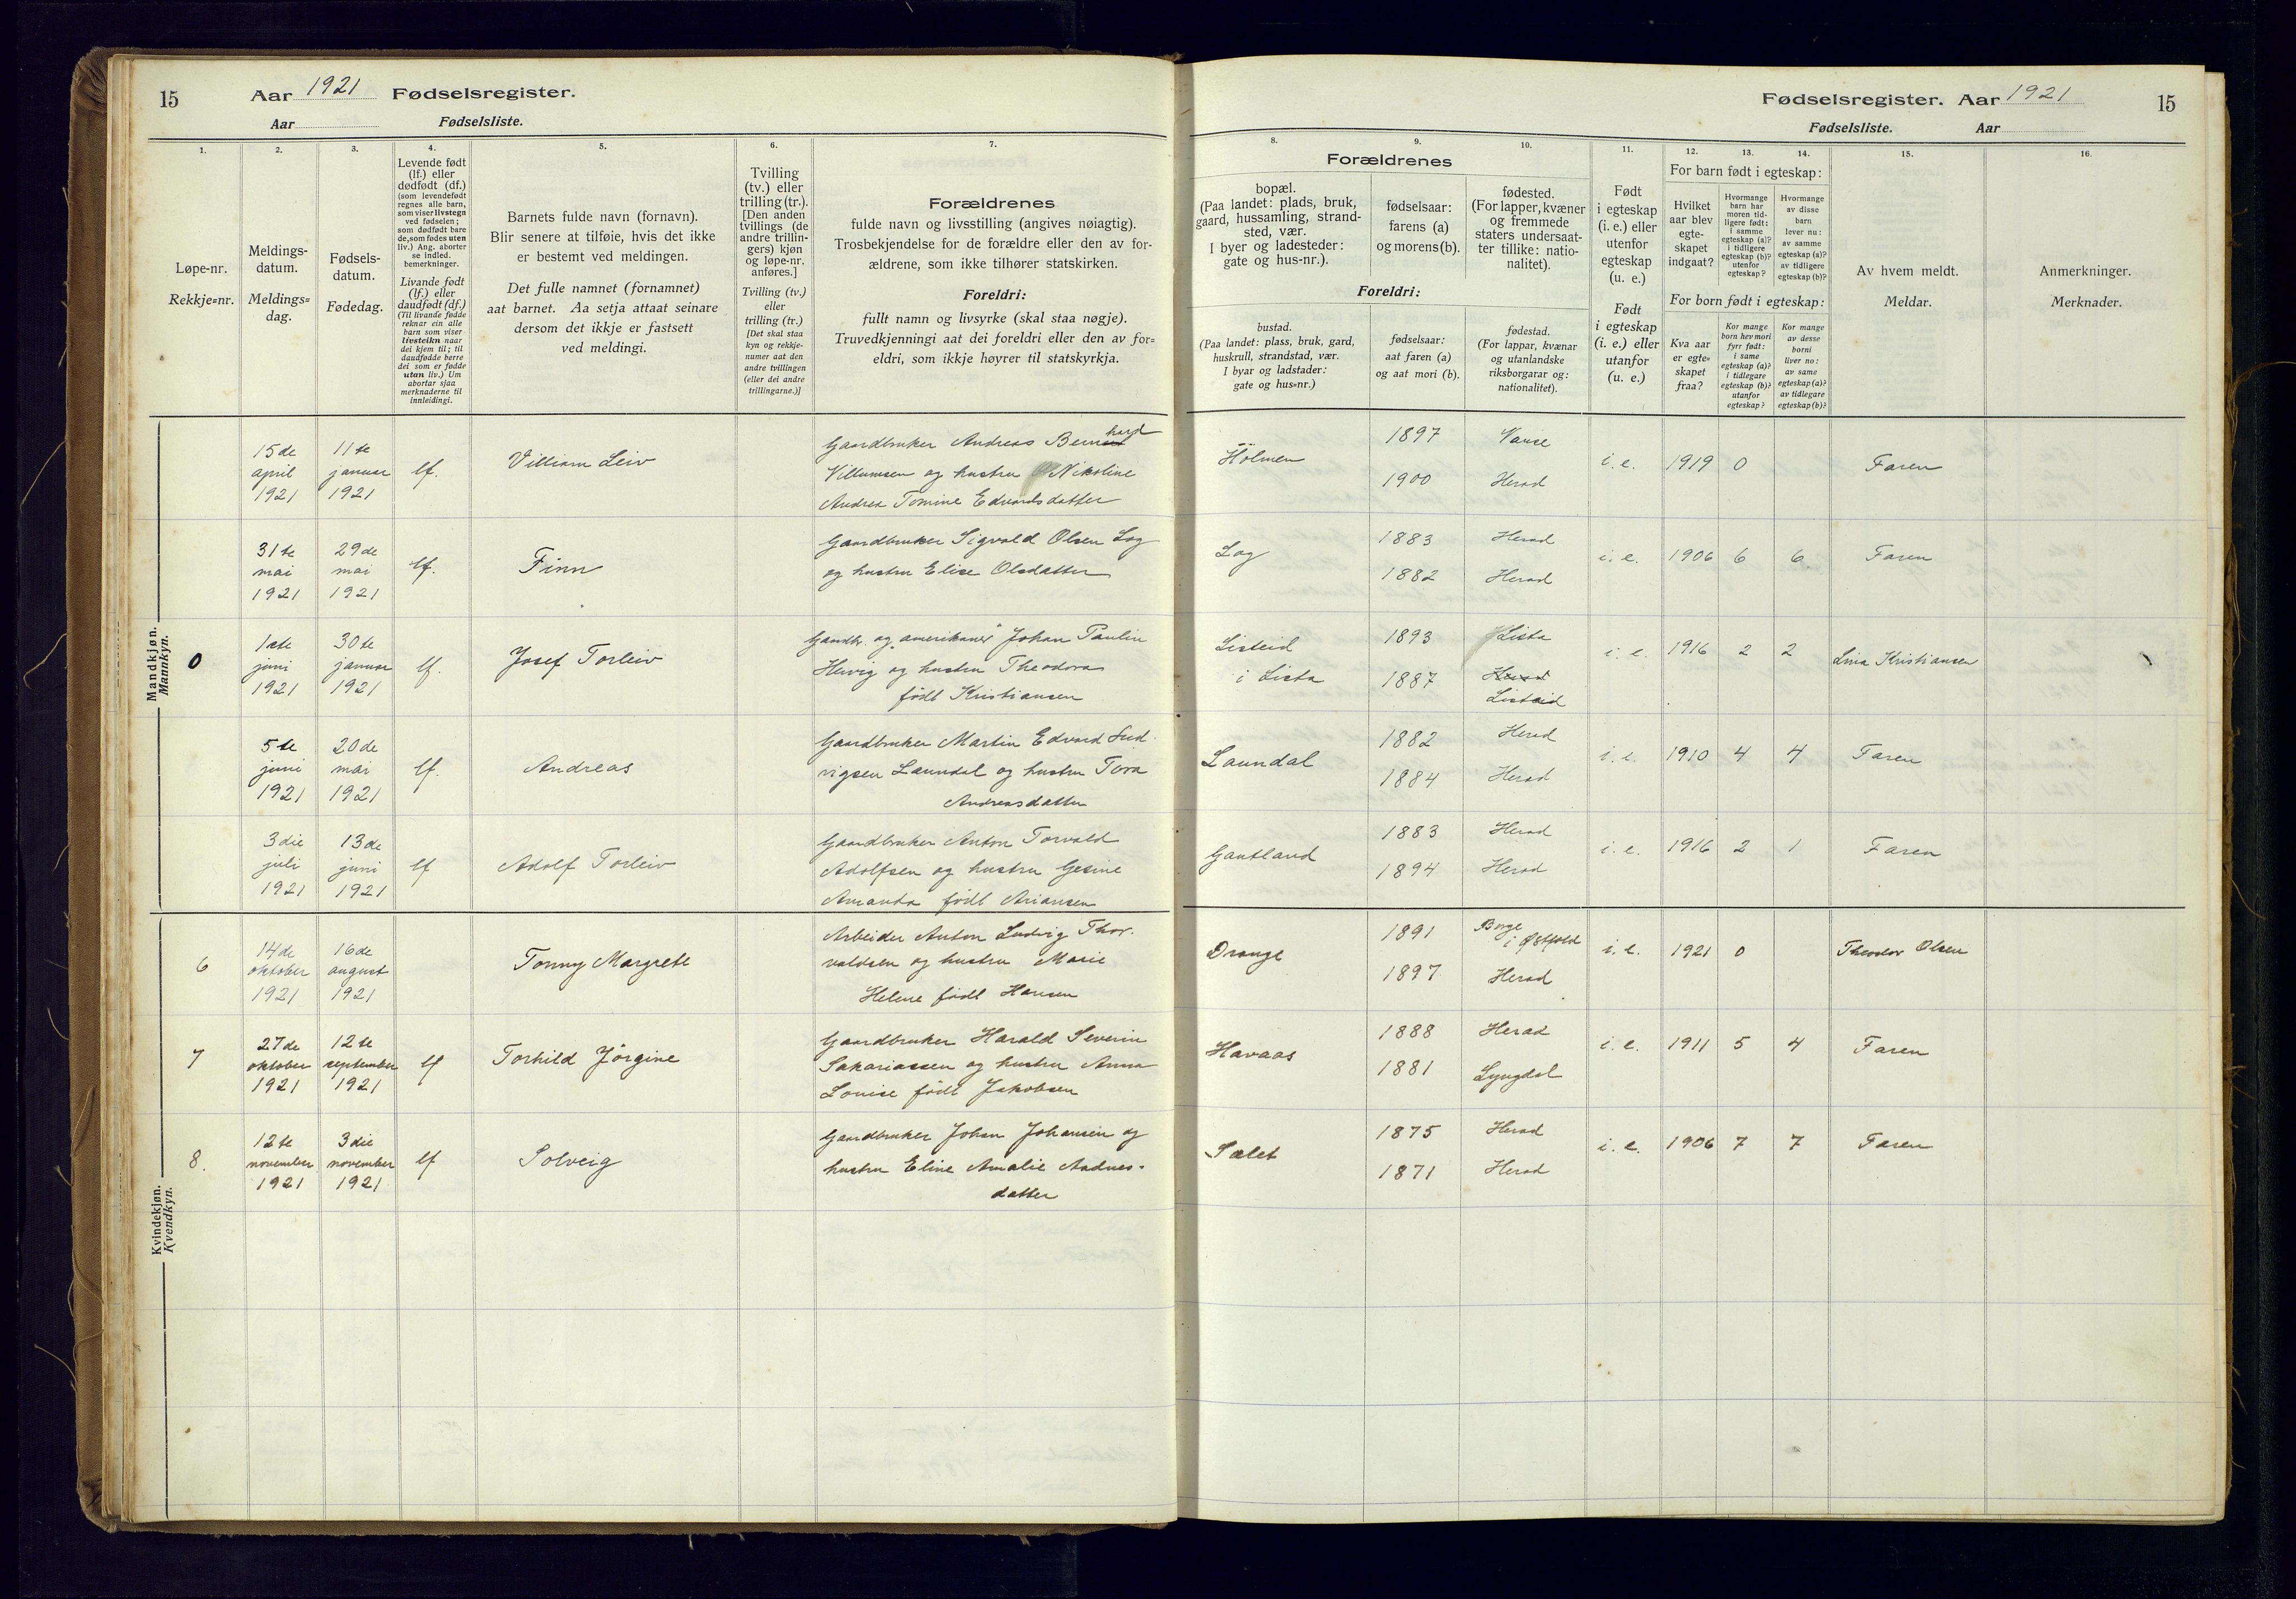 15
Aar 1921 Fødselsregister.
Aar Fødselsliste.
1.
2.
3.
4.
5.
6.
7.
Løpe-nr.
Rekkje=nr.
Meldings-
datum.
Meldings=
dag.
Fødsels-
datum.
Fødedag.
Levende født
(lf.) eller
dødfødt (df.)
(som levendefødt
regnes alle barn,
som viser livstegn
ved fødselen;
som dødfødt bare
de, som fødes uten
liv.) Ang. aborter
se indled.
bemerkninger.
Livande født
(lf.) eller
daudfødt (df.)
(Til livande fødde
reknar ein alle
barn som viser
livsteikn naar
dei kjem til; til
daudfødde berre
dei som er fødde
utan liv.) Um
abortar sjaa
merknaderne til
innleidingi.
Barnets fulde navn (fornavn).
Blir senere at tilføie, hvis det ikke
er bestemt ved meldingen.
Det fulle namnet (fornamnet)
aat barnet. Aa setja attaat seinare
dersom det ikkje er fastsett
ved meldingi.
Tvilling
(tv.) eller
trilling (tr.).
[Den anden
tvillings (de
andre trillin-
gers) kjøn
og løpe-nr.
anføres.]
Tvilling (tv.)
eller
trilling (tr.)
[Det skal staa
kyn og rekkje-
numer aat den
andre tvillingen
(eller dei andre
trillingarne.)]
Forældrenes
fulde navn og livsstilling (angives nøiagtig).
Trosbekjendelse for de forældre eller den av for-
ældrene, som ikke tilhører statskirken.
Foreldri:
fullt namn og livsyrke (skal staa nøgje).
Truvedkjenningi aat dei foreldri eller den av for=
eldri, som ikkje høyrer til statskyrkja.
Mandkjøn.
Mannkyn.
15de
april
1921
11te
januar
1921
lf.
Villiam Leiv
Gaardbruker Andreas Bernhard
Villumsen og hustru Nikoline
Andrea Tomine Edvardsdatter
31te
mai
1921
29de
mai
1921
lf.
Finn
Gaardbruker Sigvald Olsen Log
og hustru Elise Olsdatter
0
1ste
juni
1921
30te
januar
1921
lf.
Josef Torleiv
Gaardbr. og "amerikaner" Johan Paulin
Hervig og hustru Theodora
født Kristiansen
5te
juni
1921
20de
mai
1921
lf.
Andreas
Gaardbruker Martin Edvard Lud-
vigsen Laundal og hustru Tora
Andreasdatter
3die
juli
1921
13de
juni
1921
lf
Adolf Torleiv
Gaardbruker Anton Torvald
Adolfsen og hustru Gesine
Amanda født Ariansen
Kvindekjøn.
Kvendkyn.
6
14de
oktober
1921
16de
august
1921
Tonny Margrete
Arbeider Anton Ludvig Thor-
valdsen og hustru Marie
Helene født Hansen
7
27de
oktober
1921
12te
september
1921
lf
Torhild Jörgine
Gaardbruker Harald Severin
Sakariassen og hustru Anna
Louise født Jakobsen
8.
12te
november
1921
3die
november
1921
lf
Solveig
Gaardbruker Johan Johansen og
hustru Eline Amalie Aadnes-
datter
Fødselsregister. Aar 1921
15
Fødselsliste. Aar
8.
9.
10.
11.
12.
13.
14.
15.
16.
Forældrenes
bopæl.
(Paa landet: plads, bruk,
gaard, hussamling, strand-
sted, vær.
I byer og ladesteder:
gate og hus-nr.).
fødselsaar:
farens (a)
og morens (b).
fødested.
(For lapper, kvæner
og fremmede
staters undersaat-
ter tillike: natio-
nalitet).
Foreldri:
bustad.
(Paa landet: plass, bruk, gard,
huskrull, strandstad, vær.
I byar og ladstader:
gate og hus=nr.)
fødselsaar:
aat faren (a)
og aat mori (b).
fødestad.
(For lappar, kvænar
og utanlandske
riksborgarar og:
nationalitet).
Født
i egteskap
(i. e.) eller
utenfor
egteskap
(u. e.)
Født
i egteskap
(i. e.) eller
utanfor
(u. e.)
For barn født i egteskap:
Hvilket
aar blev
egte-
skapet
indgaat?
Hvormange
barn har
moren tid-
ligere født:
i samme
egteskap (a)?
i tidligere
egteskap (b)?
utenfor
egteskap?
Hvormange
av disse
barn
lever nu:
av samme
egteskap (a)?
av tidligere
egteskap (b)?
For born født i egteskap:
Kva aar
er egte=
skapet
fraa?
Kor mange
born hev mori
fyrr født:
i same
egteskap (a)?
i tidlegare
egteskap (b)?
utanfor
egteskap?
Kor mange
av desse
borni
liver no:
av same
egteskap (a)?
av tidlegare
egteskap (b)?
Av hvem meldt.
Meldar.
Anmerkninger.
Merknader.
Hölmen
1897
1900
Vanse
Herad
i. e. 1919 0
Faren
Log
1883
1882
Herad
Herad
i. e. 1906 6 6
Faren
Listeid
i Lista
1893
1887
Lista
Herad
Listeid
i. e. 1916 2 2
Lina Kristiansen
Laundal
1882
1884
Herad
Herad
i. e. 1910 4 4
Faren
Gautland
1883
1894
Herad
Herad
i. e. 1916 2 1
Faren
Drange
1891
1897
Borge
i Østfold
Herad
i. e. 1921 0
Theodor Olsen
Havaas
1888
1881
Herad
Lyngdal
i. e. 1911 5 4
Faren
Sælet
1875
1871
Herad
Herad
i. e. 1906 7 7
Faren